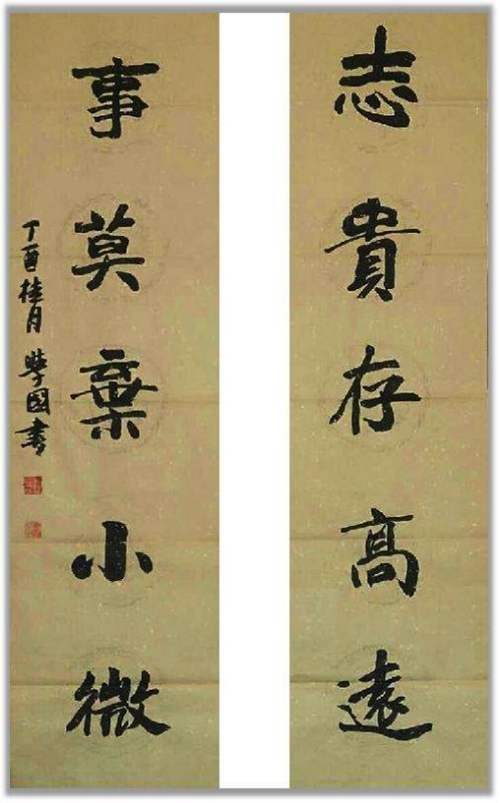 志貴存高遠
事莫棄小微
丁酉桂月學國書